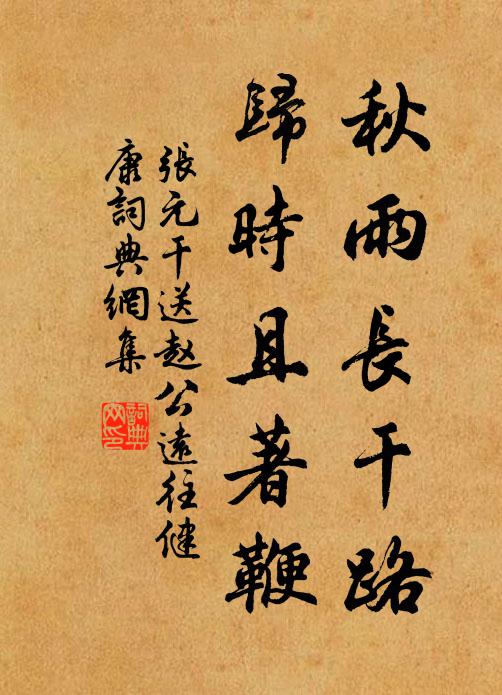 秋雨長干路
歸時且著鞭
張元干送赵公遠往健
康詞典網集
詞典
网印